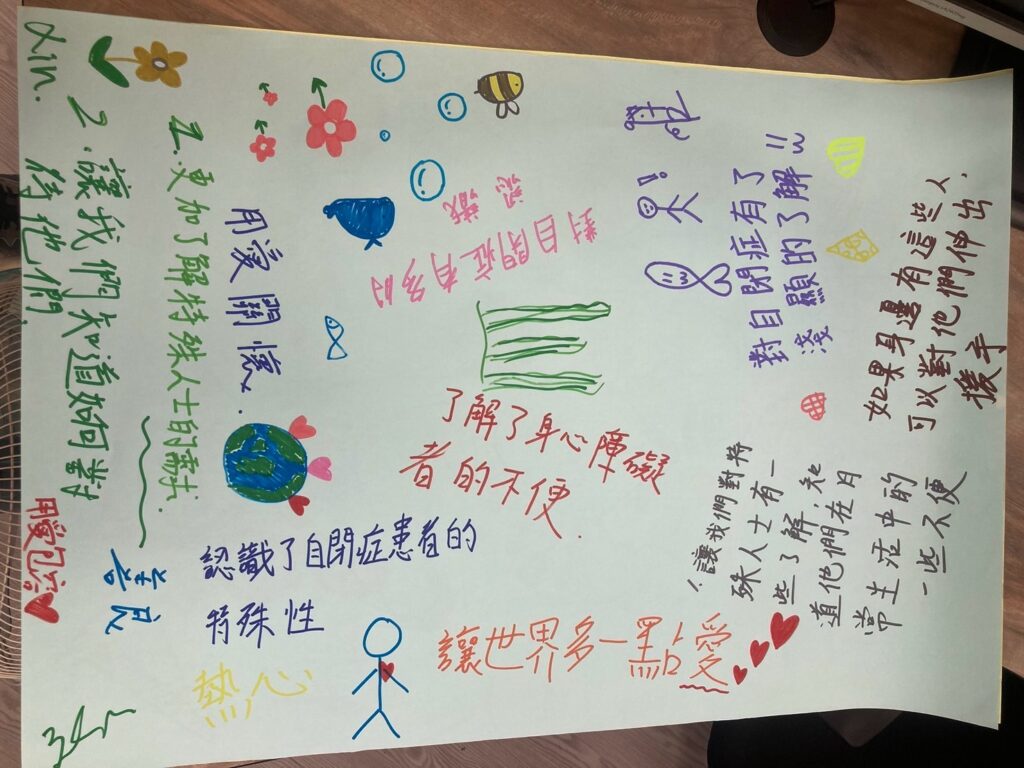 Lin.
2. 讓我們知道如何善
待他們.
1. 更加了解特殊人士的需求.
用愛關懷.
認識
對自閉症有多的
對自閉症有了
淺顯的了解
如果身邊有這些人.
可以對他們伸出
援手
了解了身心障礙
者的不便.
讓我們對特
殊人士有一
些了解,知
道他們在日
常生活中的
一些不便
用愛包容
善良
認識了自閉症患者的
特殊性
熱心
讓世界多一點愛